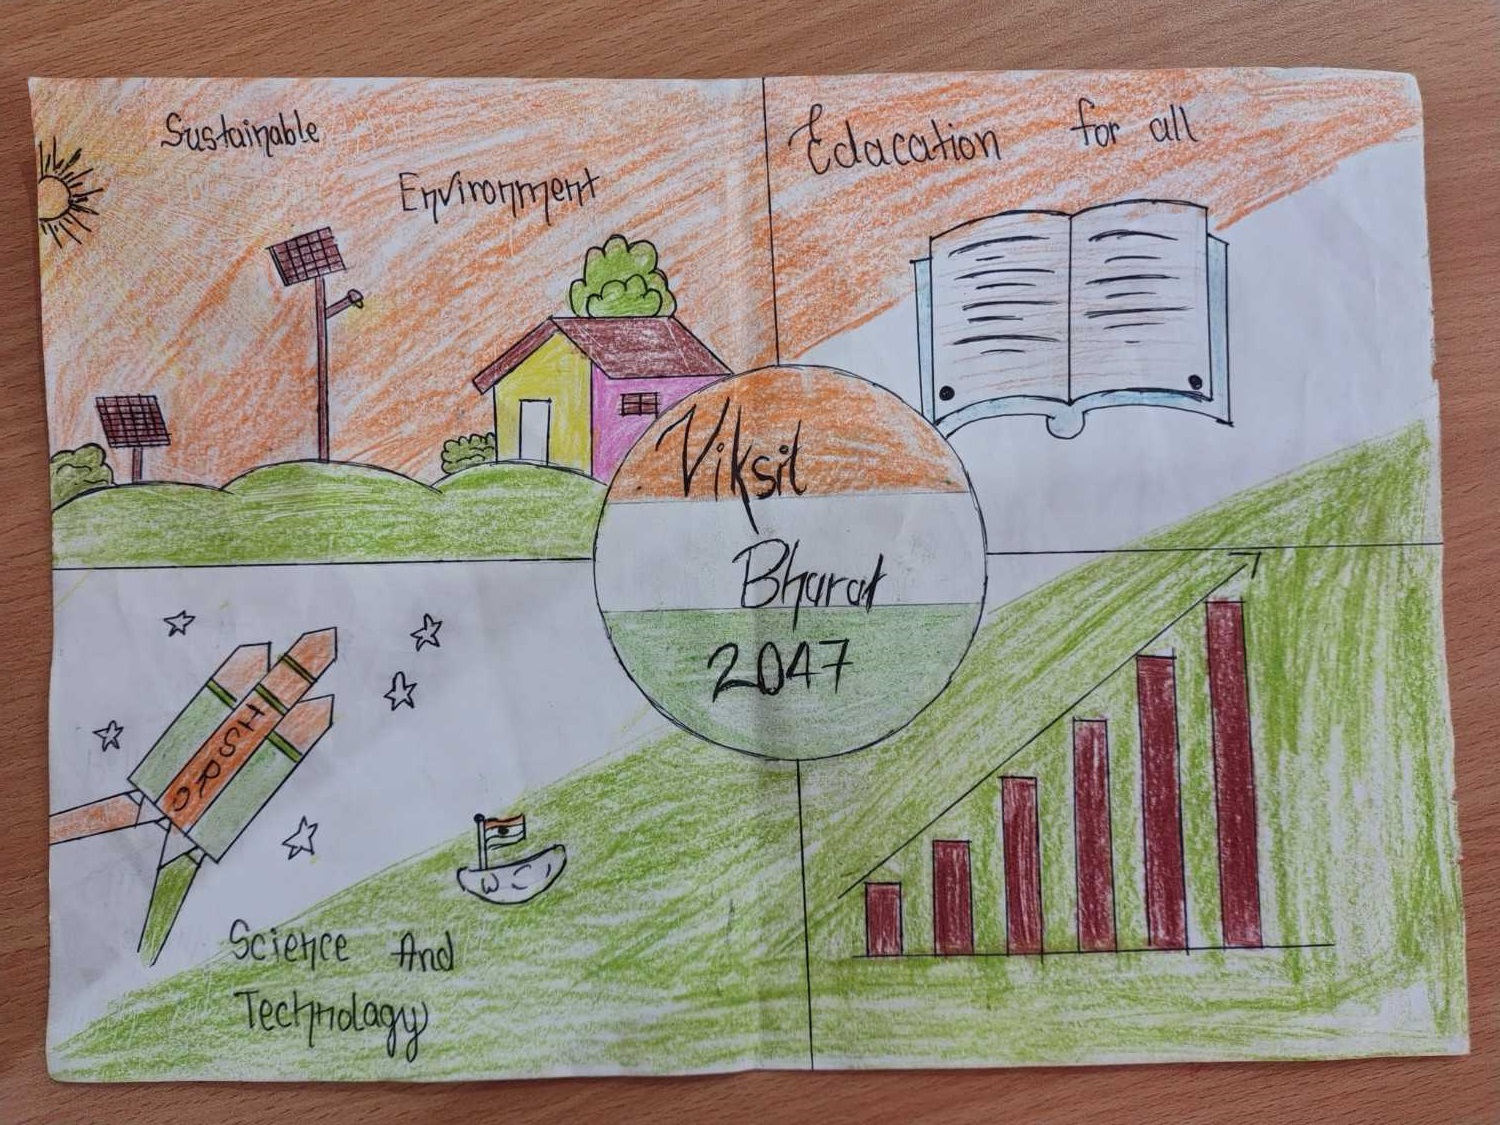 Sustainable
Environment
Edacation for all
Viksit
Bharat
2047
HSRC
WC
Science And
Technolagy